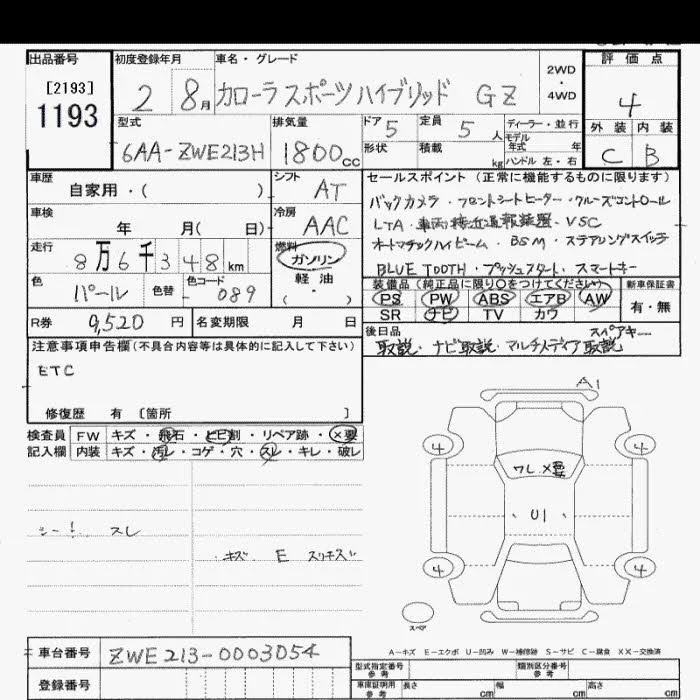 出品番号
[2193]
1193
初度登録年月
2 8月
車名・グレード
カローラスポーツハイブリッド GZ
2WD
・
4WD
評価点
4
外装 内装
C B
型式
6AA-ZWE213H
排気量
1800cc
ドア 5
定員 5人
形状
積載 kg
ディーラー・並行
モデル年式 年
ハンドル 左・右
車歴
自家用・( )
シフト
AT
車検
年 月( 日)
冷房
AAC
走行
8万6千348km
燃料
ガソリン
軽油
( ・ )
色
パール
色替
色コード
089
R券 9,520円
名変期限 月 日
セールスポイント (正常に機能するものに限ります)
バックカメラ・フロントシートヒーター・クルーズコントロール
LTA・車両接近通報装置・VSC
オートマチックハイビーム・BSM・ステアリングスイッチ
BLUE TOOTH・プッシュスタート・スマートキー
装備品(純正品に限り○をつけてください)
PS PW ABS エアB AW
SR ナビ TV カワ
新車保証書
有・無
後日品
スペアキー
取説・ナビ取説・マルチメディア取説
注意事項申告欄(不具合内容等は具体的に記入して下さい)
ETC
修復歴 有 [箇所 ]
検査員
記入欄
FW キズ・飛石・ヒビ割・リペア跡・X要
内装 キズ・汚レ・コゲ・穴・スレ・キレ・破レ
シート スレ
キズ E スリキズ
A1
4
4
ワレ.X要
U1
4
4
スペア
A-キズ E-エクボ U-凹み W-補修跡 S-サビ C-腐食 XX-交換済
車台番号 ZWE213-0003054
登録番号
型式指定番号
参考
類別区分番号
参考
車庫証明用
参考
長さ cm
幅 cm
高さ cm